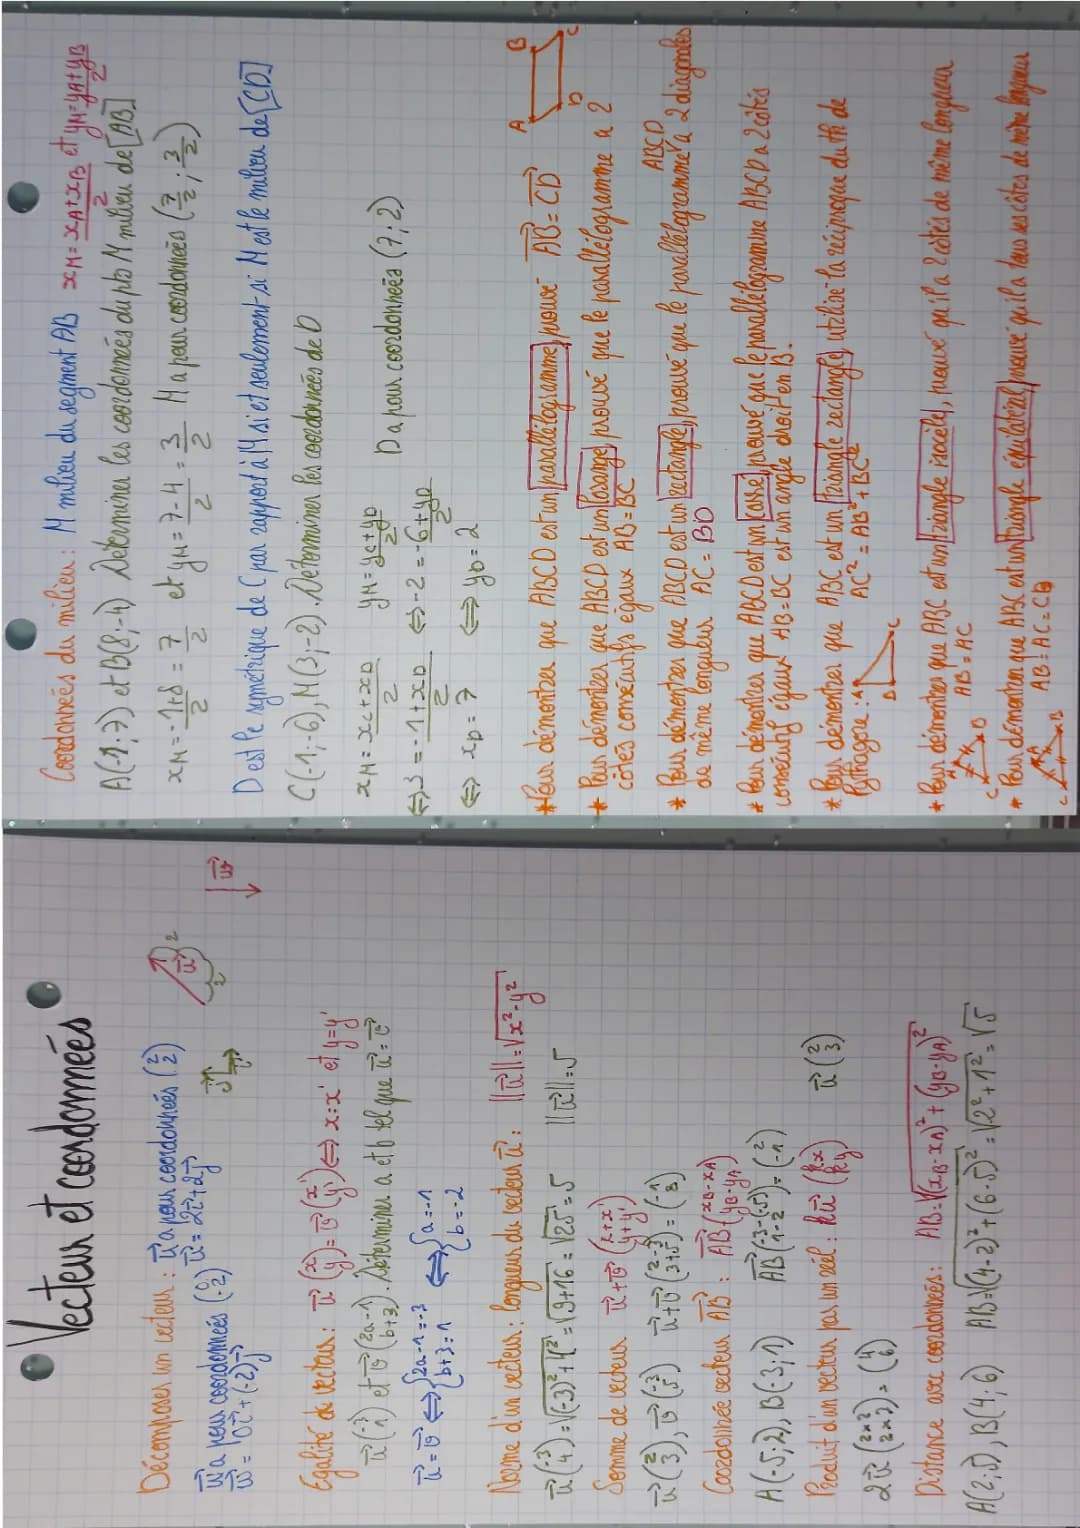 Vecteur et coordonnées
Décomposer un vecteur : u⃗ a pour coordonnées (2 2)
w⃗ a pour coordonnées (0 -2) u⃗ = 2i⃗ + 2j⃗
w⃗ = 0i⃗ + (-2)j⃗
Egalité de vecteur : u⃗ (x y) = v⃗ (x' y') ⟺ x = x' et y = y'
u⃗ (-3 1) et v⃗ (2a-1 b+3). Déterminer a et b tel que u⃗ = v⃗
u⃗ = v⃗ ⟺ { 2a-1 = -3 b+3 = 1 ⟺ { a = -1 b = -2
Norme d'un vecteur : longueur du vecteur u⃗ : ||u⃗|| = √x²-y²
u⃗ (-3 4) = √(-3)²+4² = √9+16 = √25 = 5 ||u⃗|| = 5
Somme de vecteur u⃗ + v⃗ (x+x' y+y')
u⃗ (2 3), v⃗ (-3 5) u⃗ + v⃗ (2-3 3+5) = (-1 8)
Coordonnée vecteur AB⃗ : AB⃗ (xB-xA yB-yA)
A(-5;2), B(-3;1) AB⃗ (-3-(-5) 1-2) = (2 -1)
Produit d'un vecteur par un réel : ku⃗ (kx ky) u⃗ (2 3)
2u⃗ (2×2 2×3) = (4 6)
Distance avec coordonnées : AB = √(xB-xA)² + (yB-yA)²
A(2;5), B(4;6) AB = √(4-2)² + (6-5)² = √2²+1² = √5
Coordonnées du milieu : M milieu du segment AB xM = xA+xB/2 et yM = yA+yB/2
A(-1;7) et B(8;-4) Déterminer les coordonnées du pts M milieu de [AB]
xM = -1+8/2 = 7/2 et yM = 7-4/2 = 3/2 M a pour coordonnées (7/2 ; 3/2)
D est le symétrique de C par rapport à M si et seulement si M est le milieu de [CD]
C(-1;-6), M(3;-2). Déterminer les coordonnées de D
xM = xC+xD/2 yM = yC+yD/2
⟺ 3 = -1+xD/2 ⟺ -2 = -6+yD/2 D a pour coordonnées (7;2)
⟺ xD = 7 ⟺ yD = 2
* Pour démontrer que ABCD est un parallélogramme, prouvé AB⃗ = CD⃗
A B D C
* Pour démontrer que ABCD est un losange, prouvé que le parallélogramme a 2
côtés consécutifs égaux AB = BC
* Pour démontrer que ABCD est un rectangle, prouvé que le parallélogramme ABCD a 2 diagonales
de même longueur AC = BD
* Pour démontrer que ABCD est un carré, prouvé que le parallélogramme ABCD a 2 côtés
consécutif égaux AB = BC est un angle droit en B.
* Pour démontrer que ABC est un triangle rectangle, utilisé la réciproque du th de
Pythagore : AC² = AB² + BC²
A B C
* Pour démontrer que ABC est un triangle isocele, prouvé qu'il a 2 côtés de même longueur
A C B AB = AC
* Pour démontrer que ABC est un triangle équilatéral, prouvé qu'il a tous ses côtés de même longueur
A C B AB = AC = CB